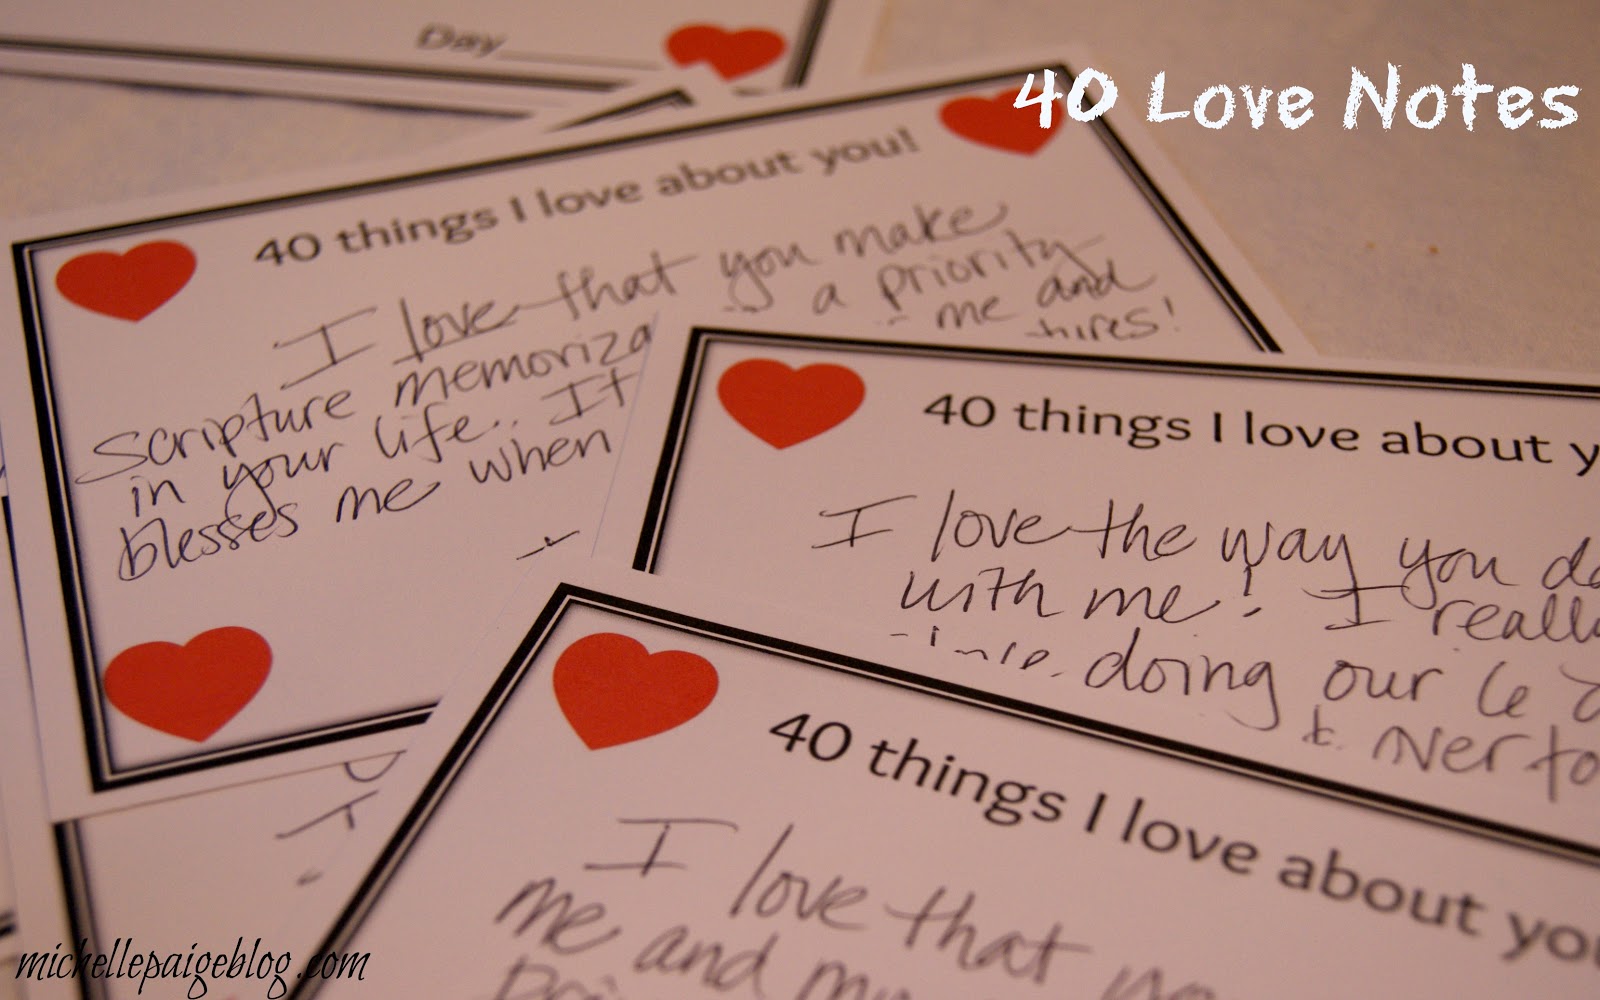 Day
40 Love Notes
40 things I love about you!
I love that you make
scripture memoriza a priority
in your life.. It me and
blesses me when hires!
40 things I love about y
I love the way you do
with me! I really
doing our
ver to
40 things I love about you
I love that yo
me and my
michellepaigeblog.com